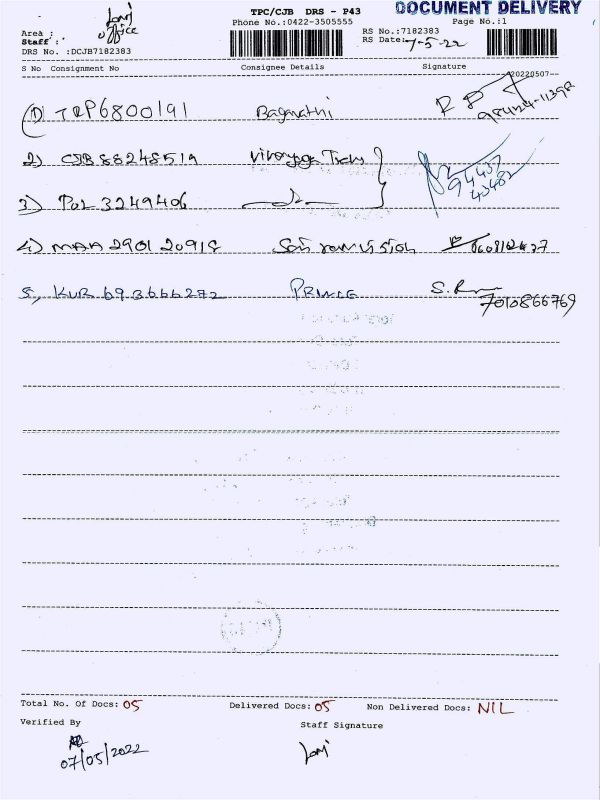 TPC/CJB DRS - P43 DOCUMENT DELIVERY
Phone No.:0422-3505555 Page No.:1
Area : office
Staff :
RS No.:7182383
RS Date: 7-5-22
DRS No. :DCJB7182383
S No Consignment No Consignee Details Signature
20220507
1) TRP6800191 Bagavathi 98424-11398
2) CJB88248519 94437 43482
3) POL 3249406
4) MAA 290120918
5, KUR 693666272 PRINCE S. 7010866769
Total No. Of Docs: 05 Delivered Docs: 05 Non Delivered Docs: NIL
Verified By Staff Signature
07/05/2022